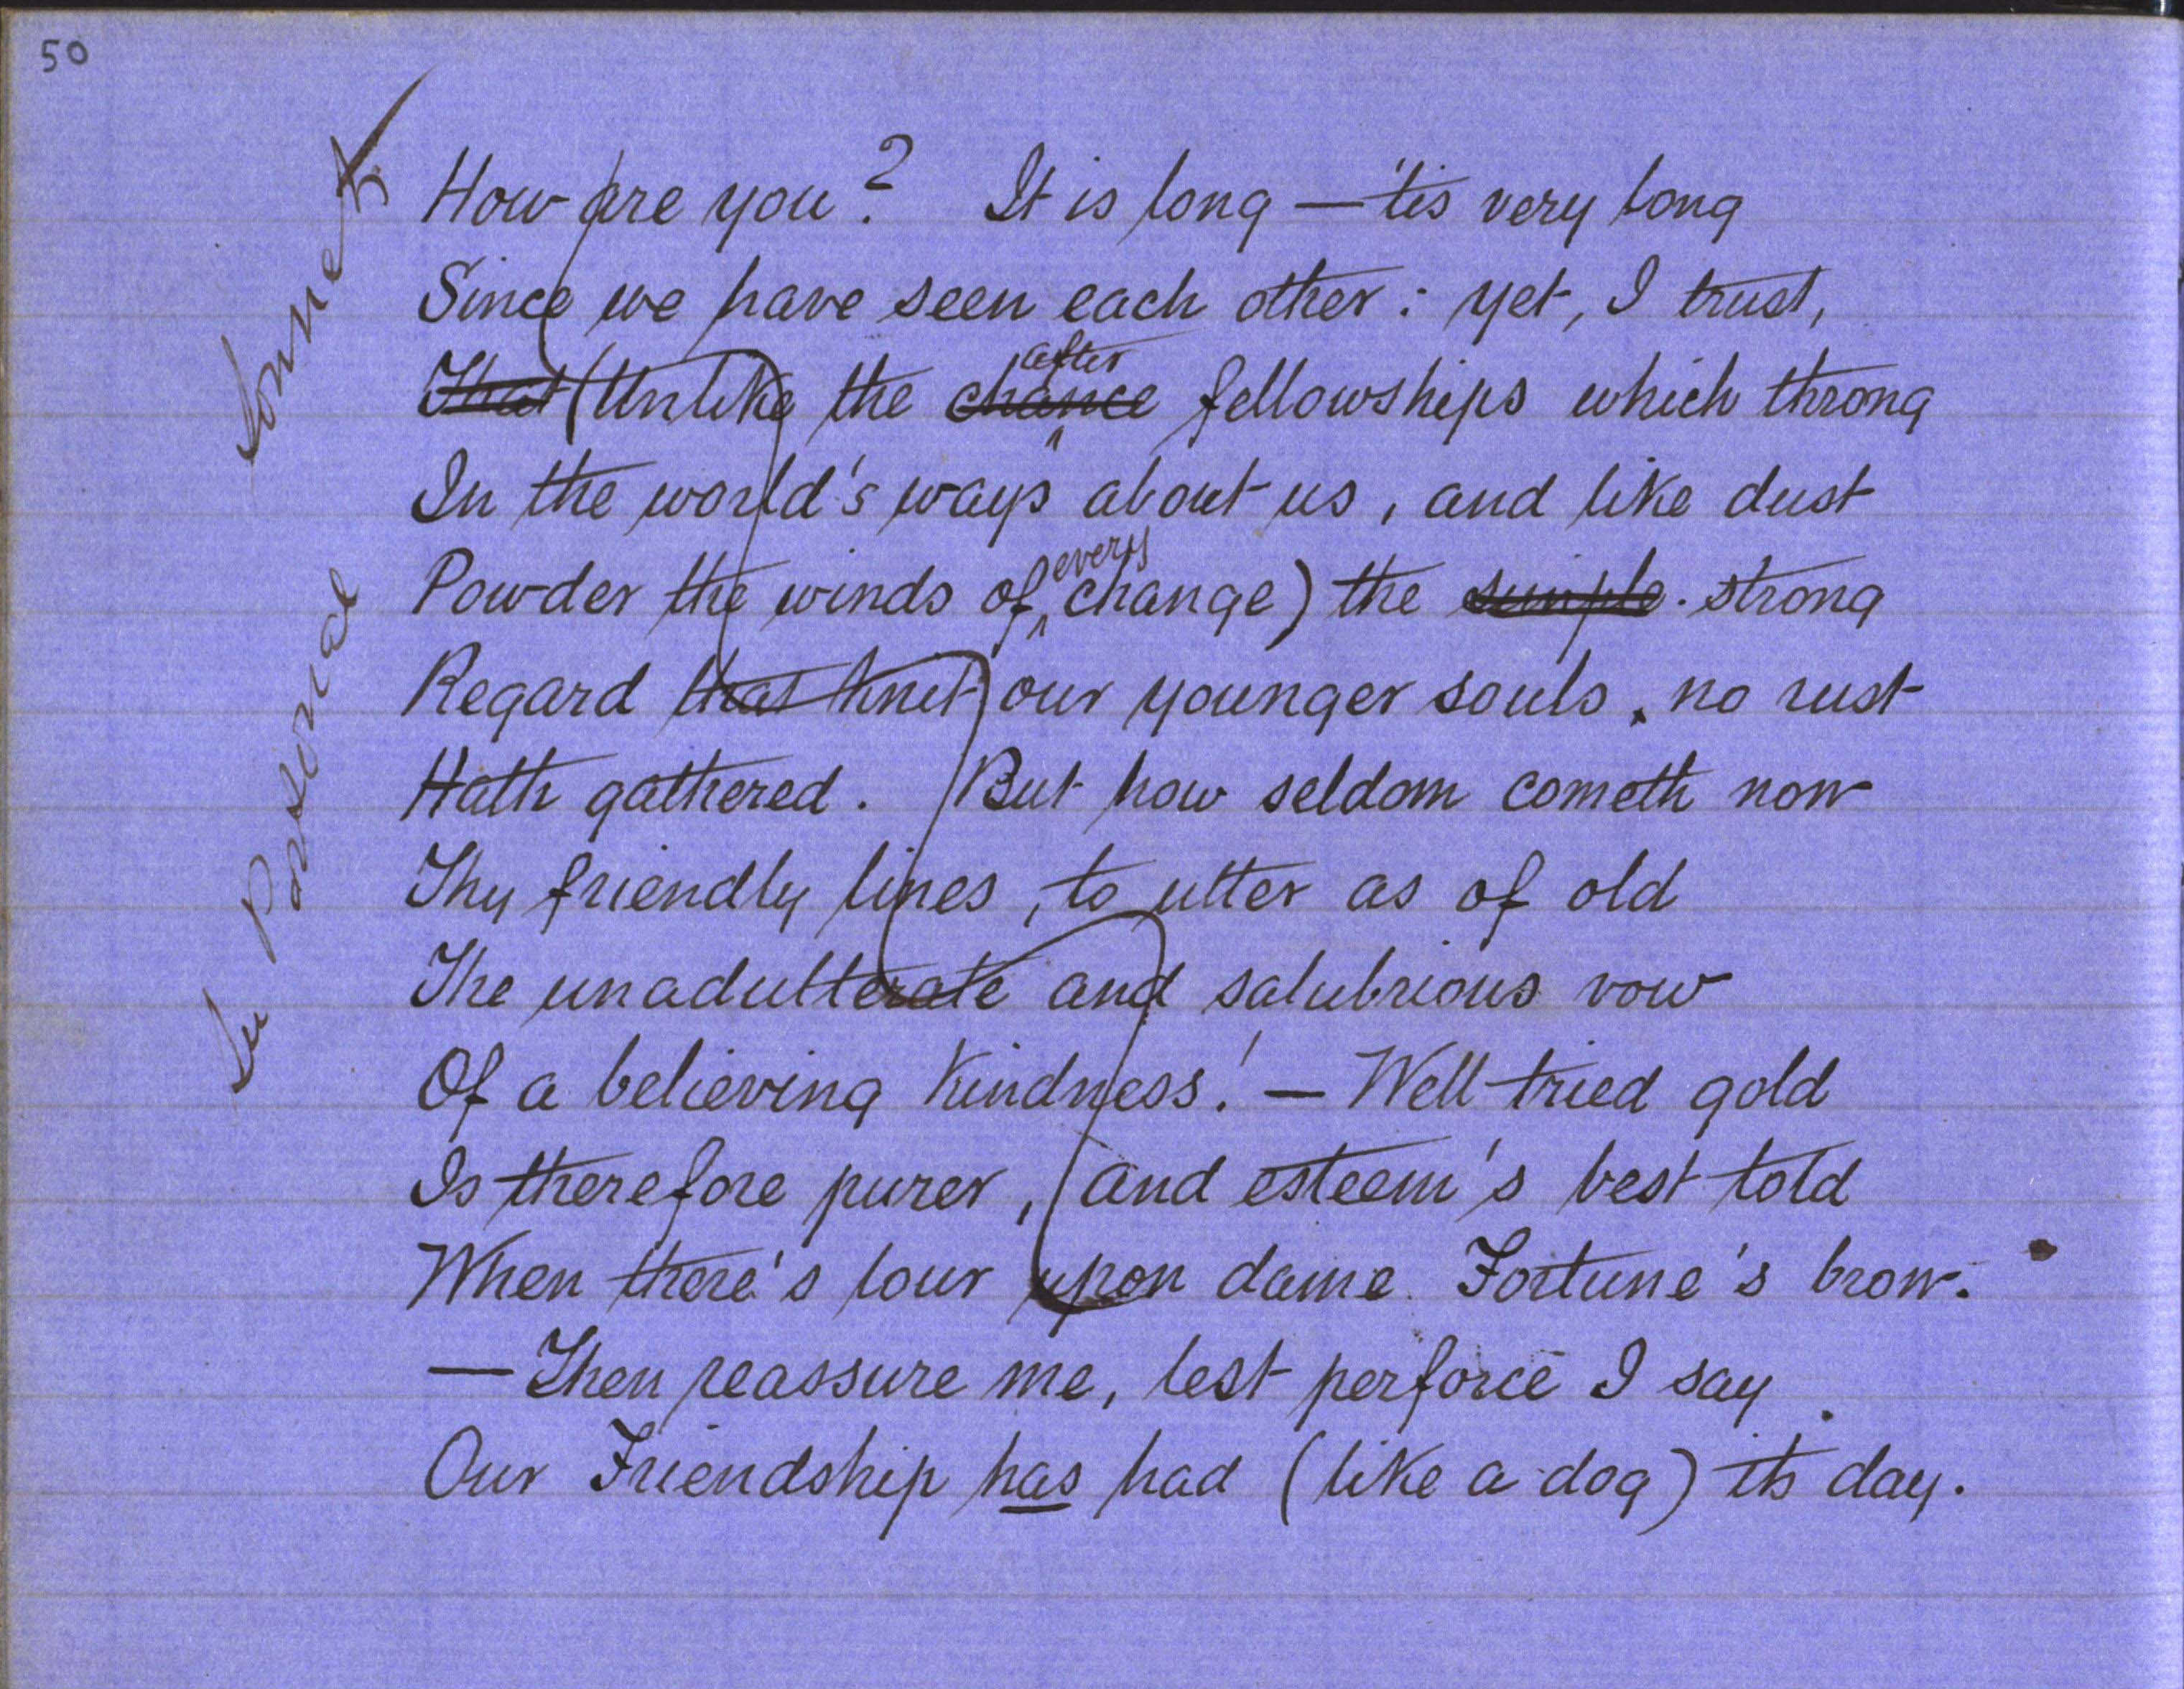 50
Sonnet
In Personal
How are you? It is long — 'tis very long
Since we have seen each other: yet, I trust,
That (Unlike the chance after fellowships which throng
In the world's ways about us, and like dust
Powder the winds of every change) the simple strong
Regard that knit our younger souls, no rust
Hath gathered. But how seldom cometh now
Thy friendly lines, to utter as of old
The unadulterate and salubrious vow
Of a believing kindness! — Well-tried gold
Is therefore purer, and esteem's best told
When there's lour upon dame Fortune's brow.
— Then reassure me, lest perforce I say
Our Friendship has had (like a dog) its day.